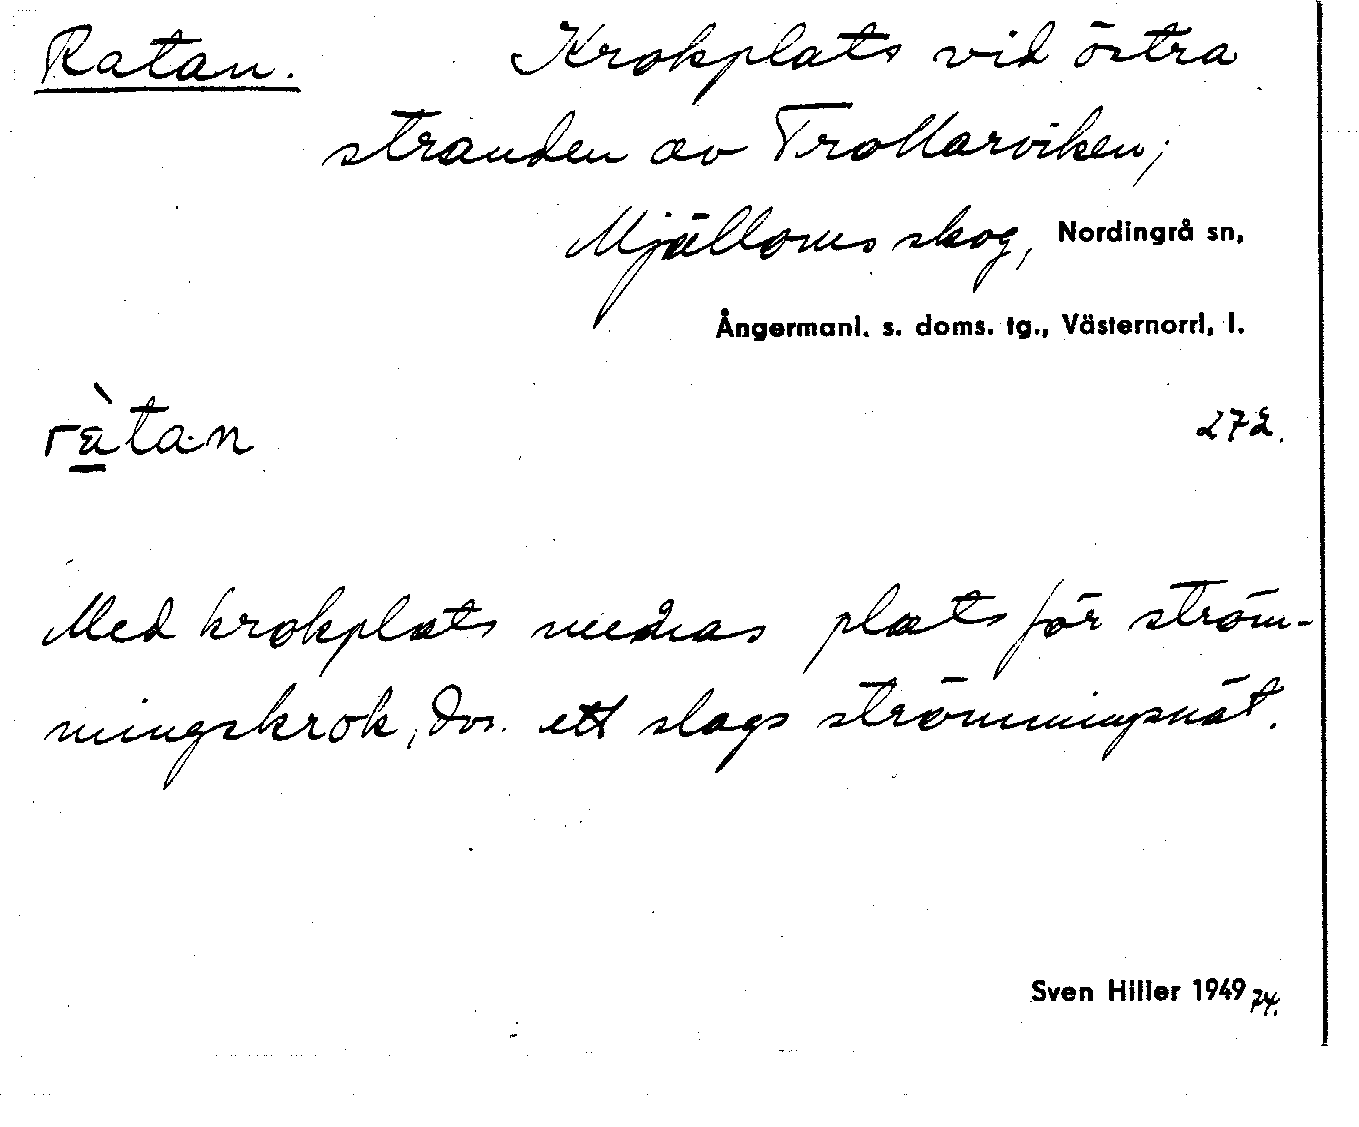 Ratan. Krokplats vid östra
stranden av Trollarviken,
Mjälloms skog, Nordingrå sn,
Ångermanl. s. doms. tg., Västernorrl. l.
ràtan 272.
Med krokplats menas plats för ström-
mingskrok, dvs. ett slags strömmingsnät.
Sven Hiller 1949 74.